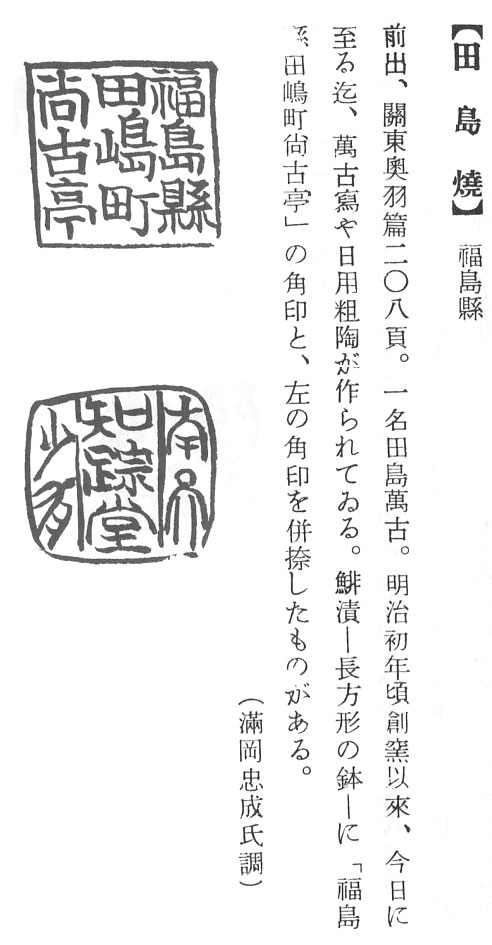 【田島燒】 福島縣
前出、關東奧羽篇二〇八頁。一名田島萬古。明治初年頃創窯以來、今日に
至る迄、萬古寫や日用粗陶が作られてゐる。鯡漬ー長方形の鉢ーに「福島
縣田嶋町尙古亭」の角印と、左の角印を併捺したものがある。
(滿岡忠成氏調)
福島縣
田嶋町
尚古亭
知踪堂